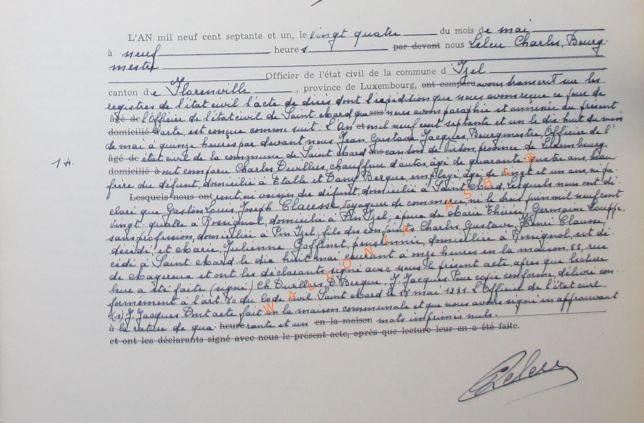 L'AN mil neuf cent septante et un, le vingt quatre du mois de mai
à neuf heures par devant nous Leleu Charles, Bourg-
mestre
Officier de l'état civil de la commune d'Izel
canton de Florenville, province de Luxembourg, ont comparu avons transcrit sur les
registres de l'état civil l'acte de décès dont l'expédition que nous avons reçue ce jour de
âgé de l'Officier de l'état civil de Saint Mard que nous avons paraphée et annexée au présent
domicilié acte, est conçue comme suit. L'An mil neuf cent septante et un le dix huit du mois
de mai à quinze heures par devant nous Jean Gustave Jacques Bourgmestre, Officier de l'
âgé de état civil de la commune de Saint Mard canton de Virton, province de Luxembourg
domicilié à ont comparu Charles Devillers, chauffeur d'autos, âgé de quarante quatre ans, beau
frère du défunt, domicilié à Etalle et Dany Bergue employé, âgé de vingt et un ans, ni pa-
Lesquels nous ont rent, ni voisin du défunt, domicilié à Saint Mard, lesquels nous ont dé-
claré que Gaston Louis Joseph Claesse, voyageur de commerce, né le trois juin mil neuf cent
vingt quatre à domicilié à Pin Izel, époux de Marie Thérèse Germaine
sans profession, domiciliée à Pin Izel, fils des conjoints Charles Gustave Henri Claesse
décédé, et Marie, Julienne Goffinet, pensionnée, domiciliée à est dé
cédé à Saint Mard le dix huit mai courant à onze heures en la maison, 55, rue
de et ont les déclarants signé avec nous le présent acte après que lecture
leur a été faite (signé) Ch Devillers, D Bergue, J. Jacques. Pour copie conforme, délivré con-
formément à l'art 80 du Code civil Saint Mard le mai 1971. L'Officier de l'état civil
(s) J. Jacques Dont acte fait en la maison communale et que nous avons signé en approuvant
à la rature de quarante et un heure en la maison mots imprimés nuls.
et ont les déclarants signé avec nous le présent acte, après que lecture leur en a été faite.
14.
Leleu